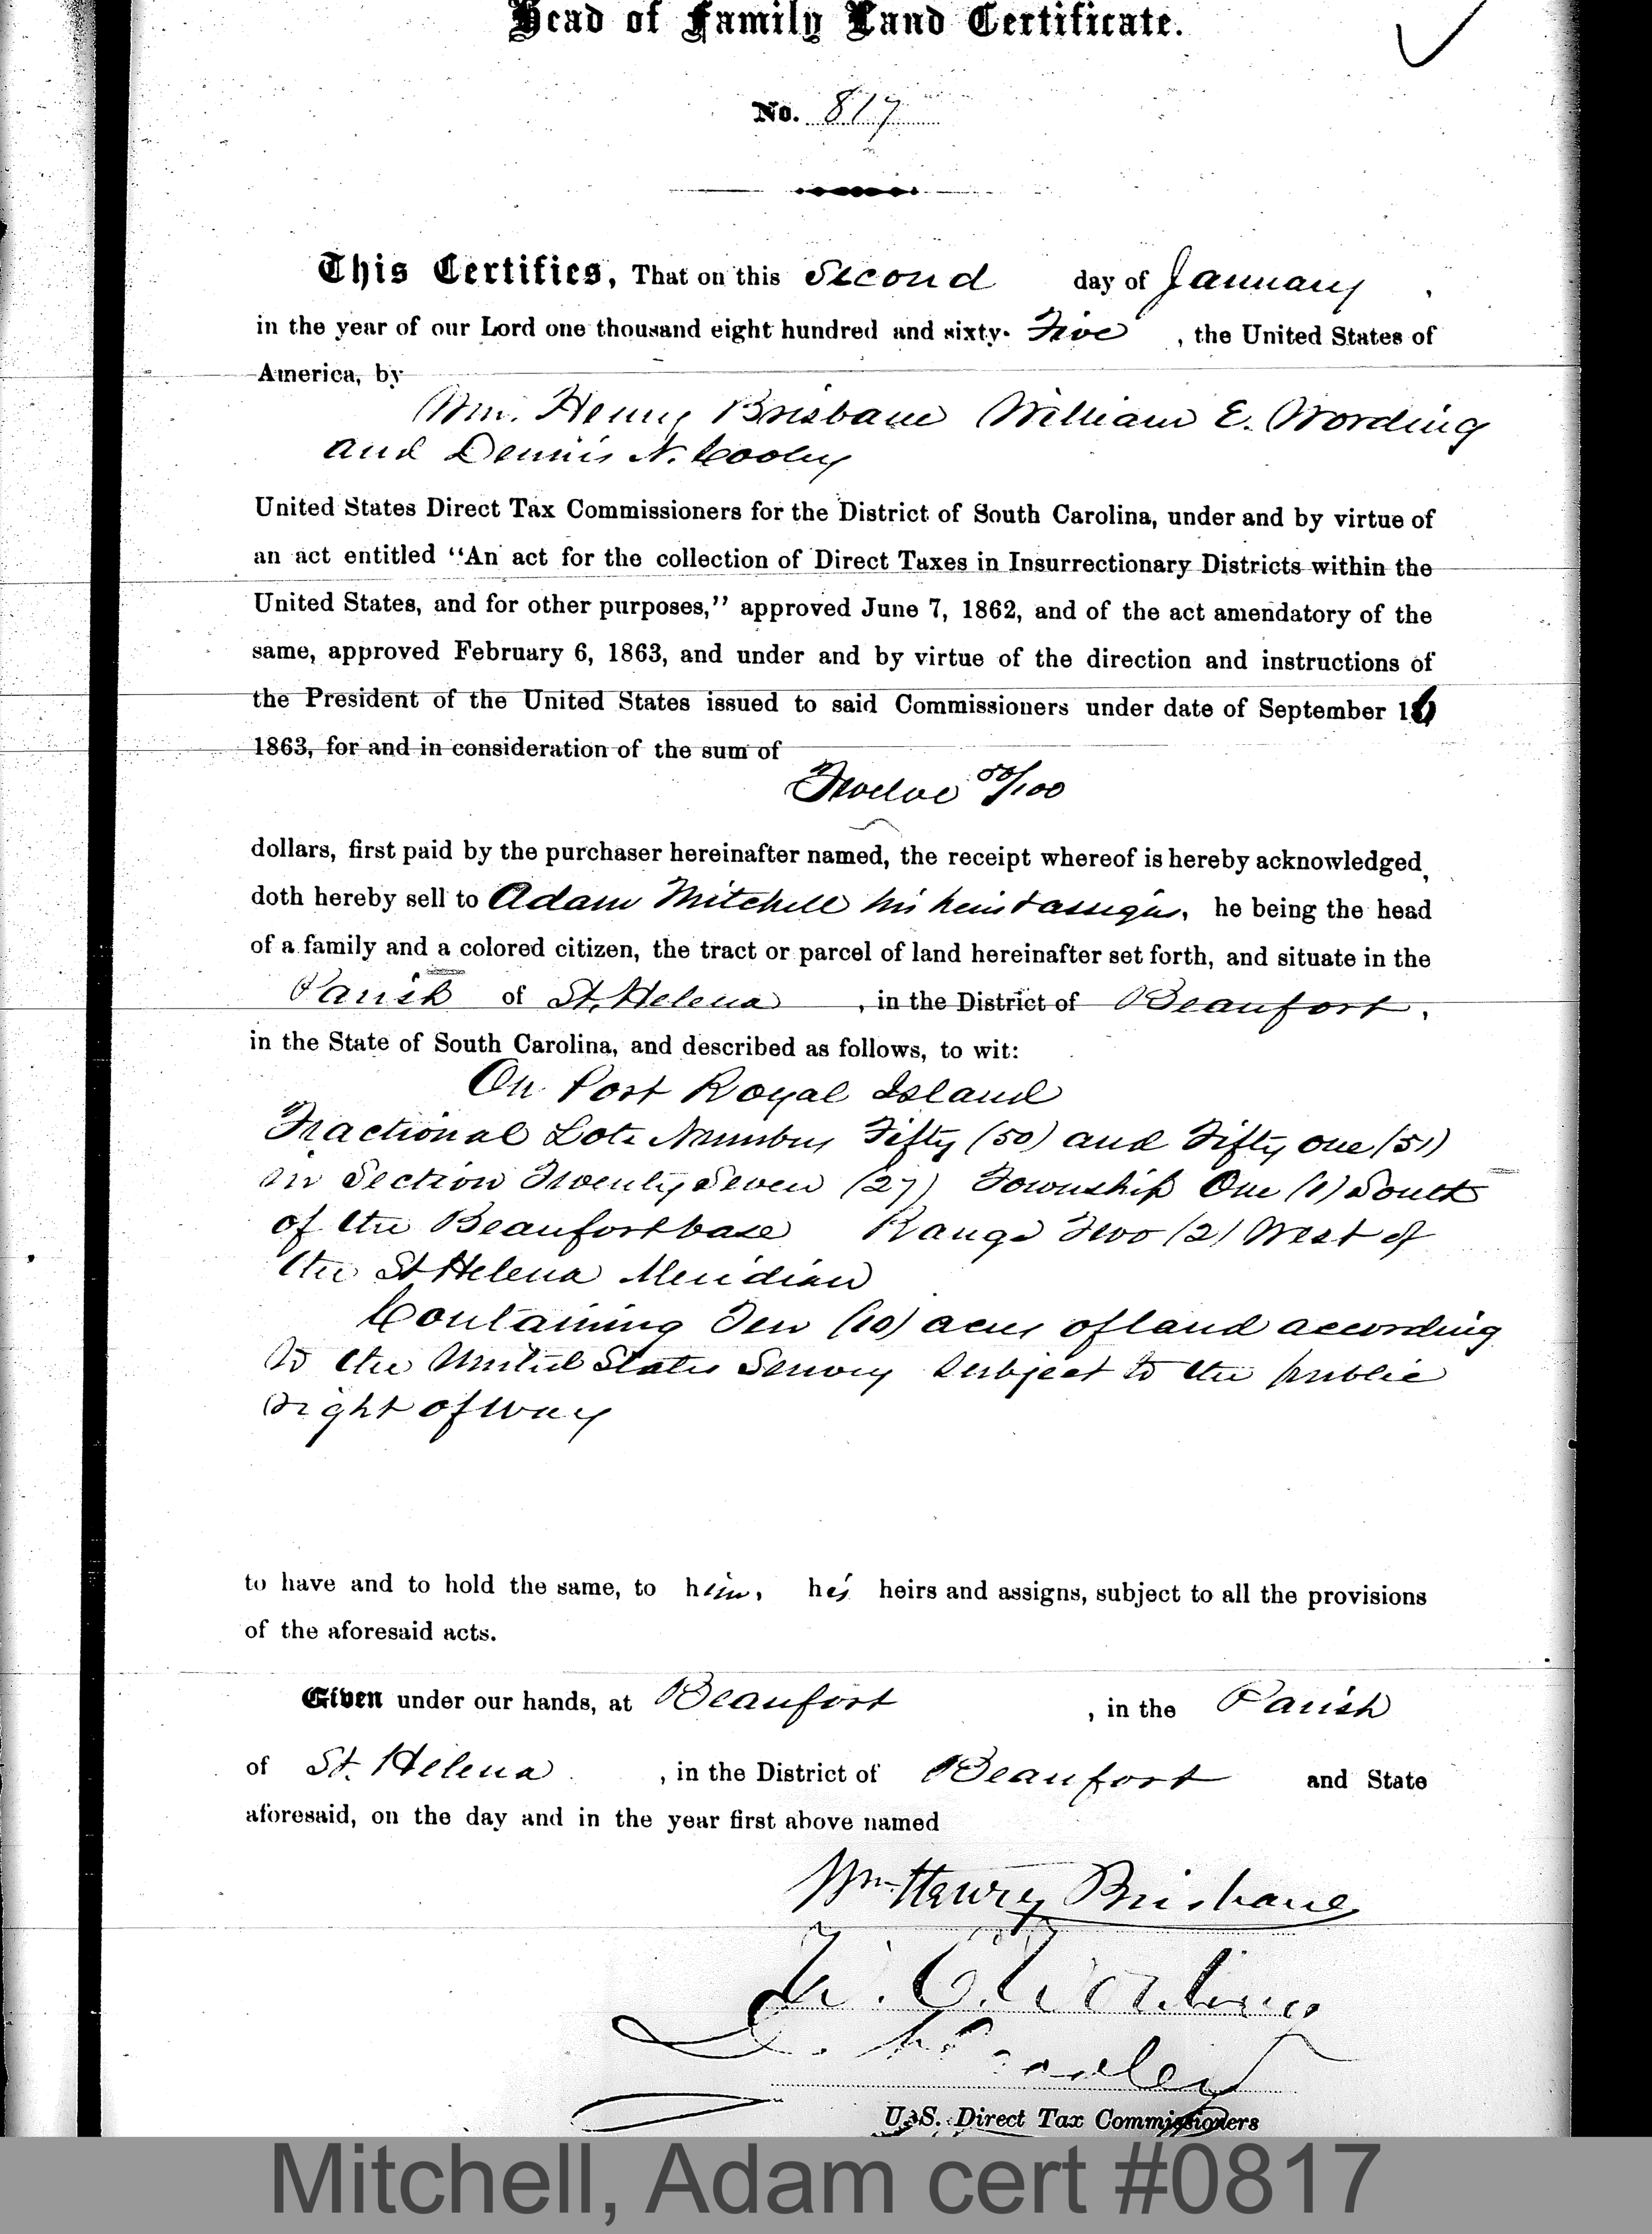 Head of Family Land Certificate.
No. 817
This Certifies, That on this Second day of January
in the year of our Lord one thousand eight hundred and sixty- Five , the United States of
America, by
Wm. Henry Brisbane William E. Wording
and Dennis N. Cooley
United States Direct Tax Commissioners for the District of South Carolina, under and by virtue of
an act entitled "An act for the collection of Direct Taxes in Insurrectionary Districts within the
United States, and for other purposes," approved June 7, 1862, and of the act amendatory of the
same, approved February 6, 1863, and under and by virtue of the direction and instructions of
the President of the United States issued to said Commissioners under date of September 16
1863, for and in consideration of the sum of
Twelve 50/100
dollars, first paid by the purchaser hereinafter named, the receipt whereof is hereby acknowledged,
doth hereby sell to Adam Mitchell his heirs & assigns, he being the head
of a family and a colored citizen, the tract or parcel of land hereinafter set forth, and situate in the
Parish of St. Helena , in the District of Beaufort,
in the State of South Carolina, and described as follows, to wit:
On Port Royal Island
Fractional Lots Numbers Fifty (50) and Fifty one (51)
in Section Twenty Seven (27) Township One (1) South
of the Beaufort base Range Two (2) West of
the St Helena Meridian
Containing Ten (10) acres of land according
to the United States Survey subject to the public
right of way
to have and to hold the same, to him, his heirs and assigns, subject to all the provisions
of the aforesaid acts.
Given under our hands, at Beaufort , in the Parish
of St. Helena , in the District of Beaufort and State
aforesaid, on the day and in the year first above named
Wm Henry Brisbane
W. E. Wording
D. N. Cooley
U. S. Direct Tax Commissioners
Mitchell, Adam cert #0817